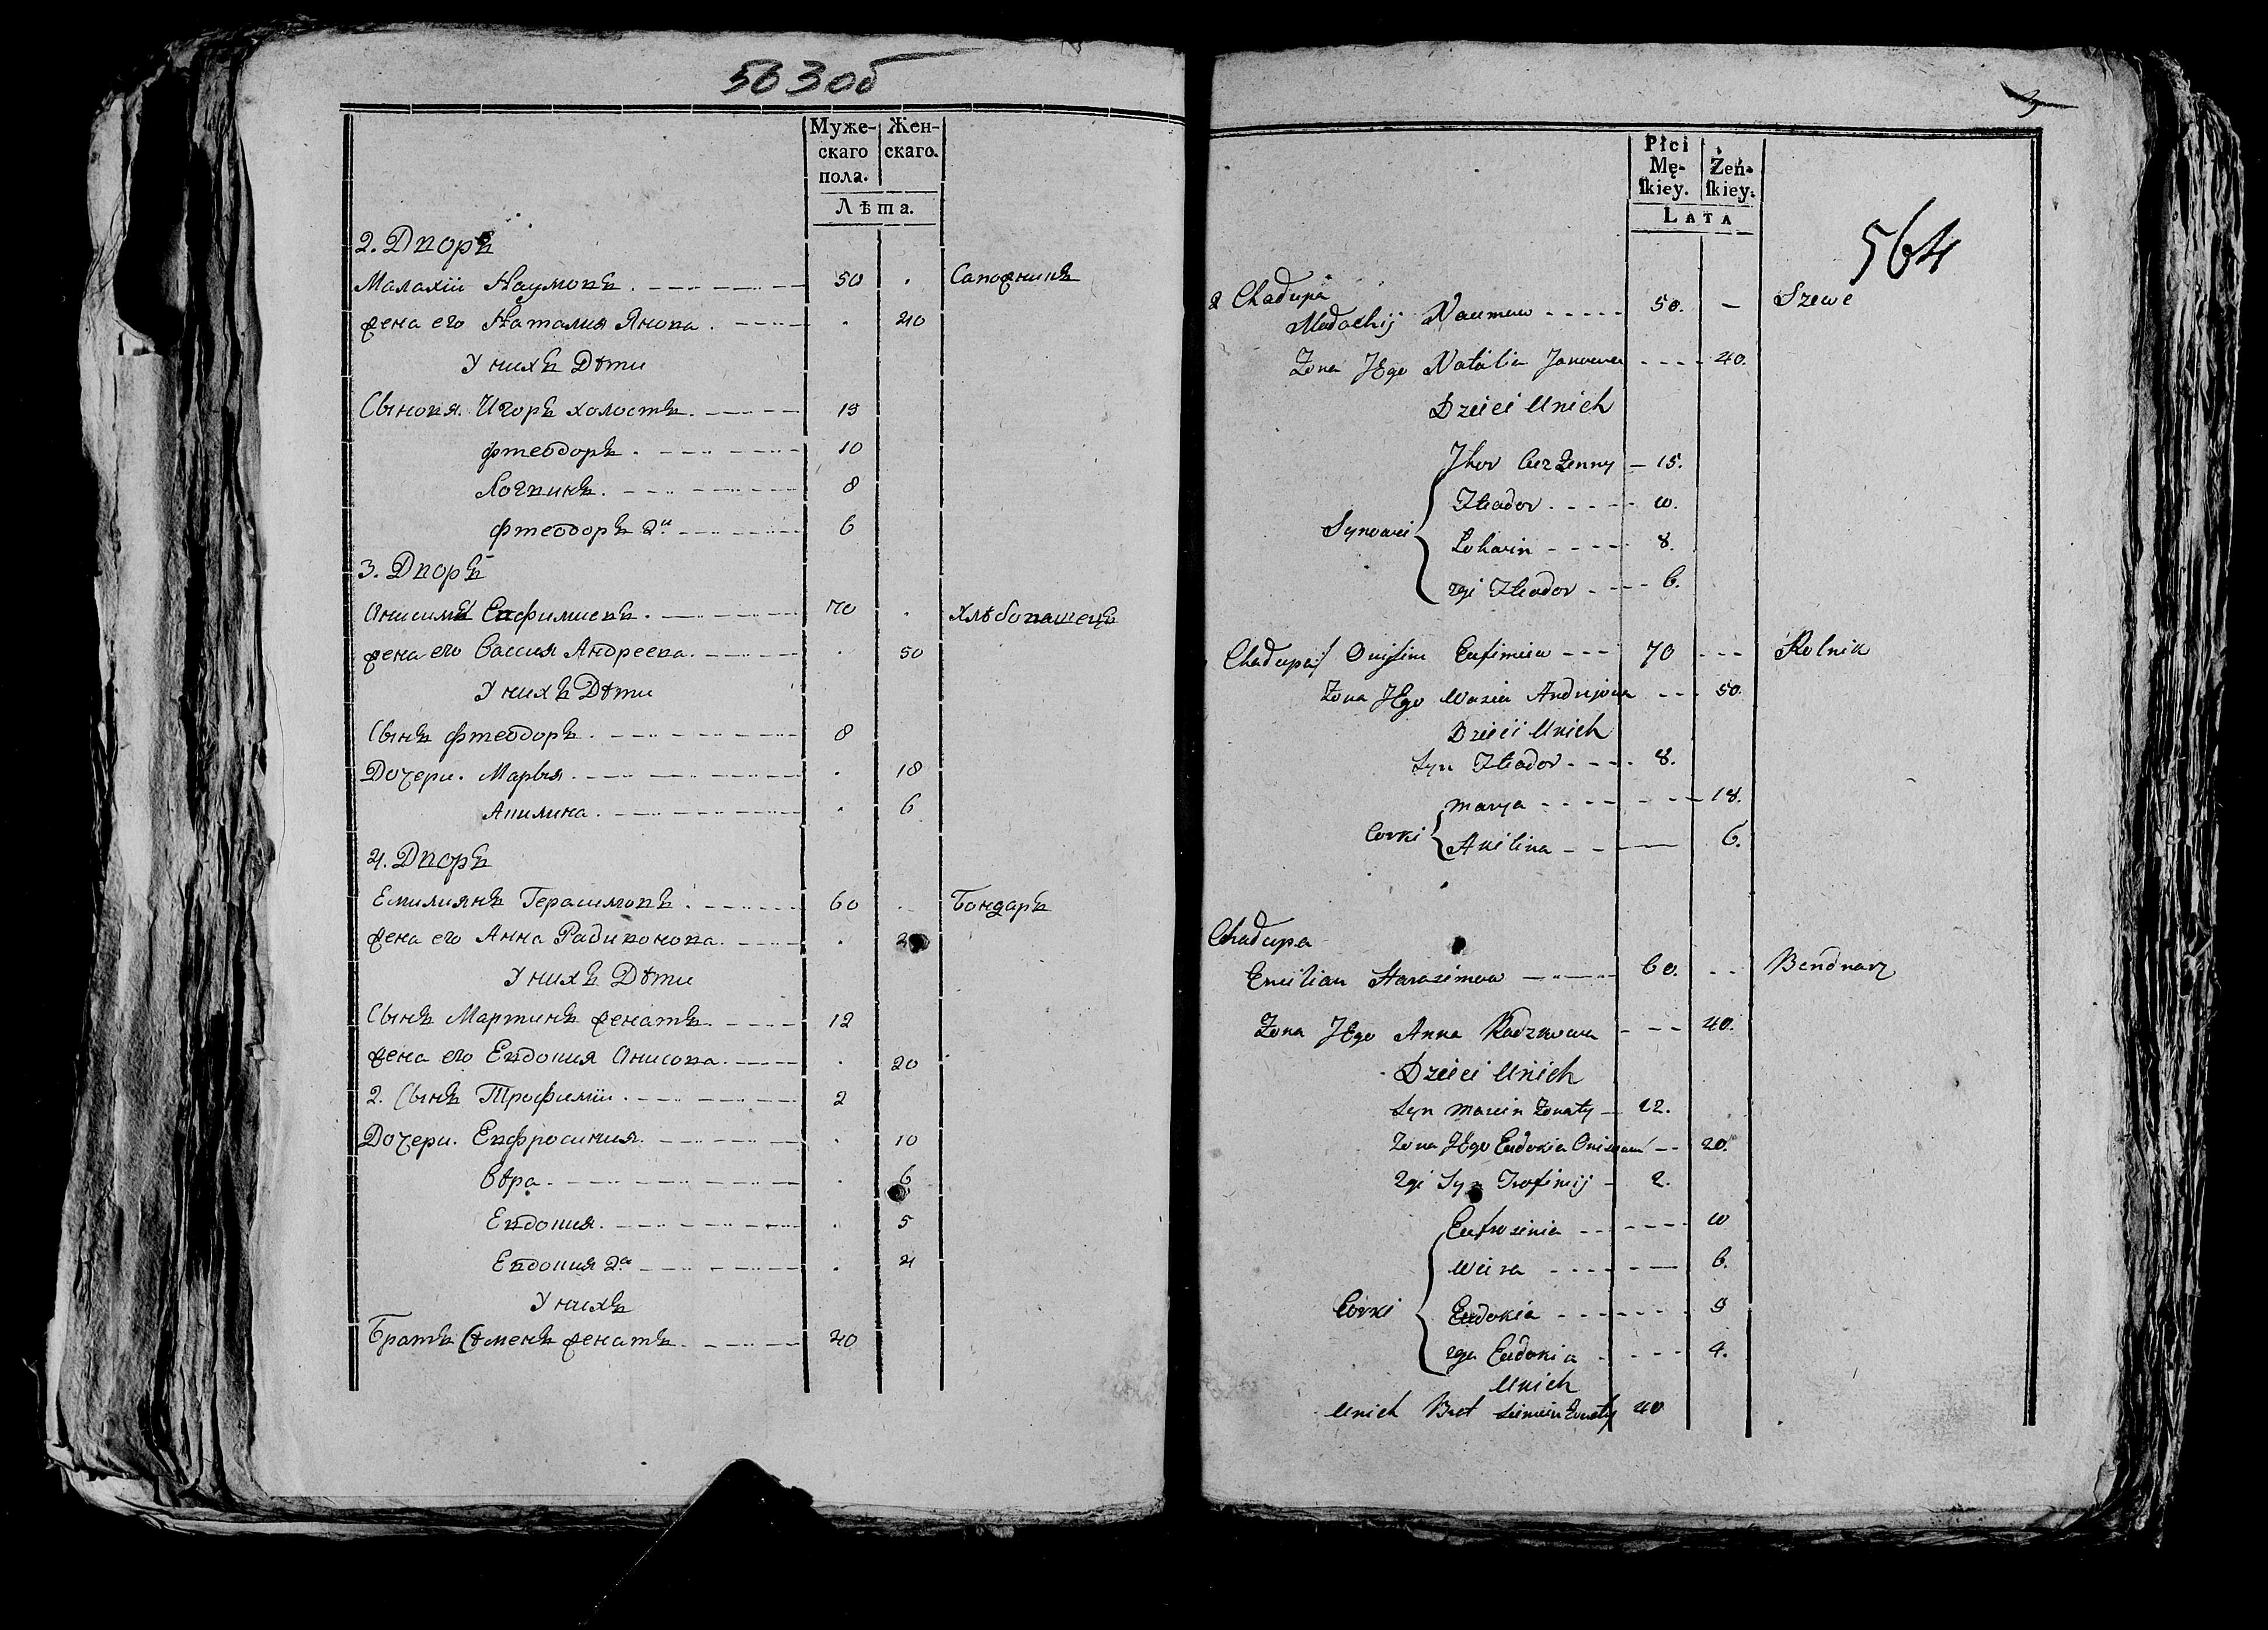 563об
Муже- Жен-
скаго скаго.
пола.
Лѣта.
2. Дворъ
Малахіи Наумовъ 50 . Сапожникъ
жена его Наталия Янова . 40
У нихъ Дѣти
Сыновя. Игоръ холостъ. 15
Фтеодоръ 10
Логвинъ. 8
Фтеодоръ 2й 6
3. Дворъ
Онисимъ Евфимиевъ. 70 . Хлѣбопашецъ
жена его Васия Андреева. . 50
У нихъ Дѣти
Сынъ Фтеодоръ. 8
Дочери. Марья. . 18
Акилина. . 6
4. Дворъ
Емилиянъ Герасимовъ. 60 . Бондаръ
жена его Анна Радивонова. .
У нихъ Дѣти
Сынъ Мартинъ женатъ. 12
жена его Евдокия Онисова. . 20
2. Сынъ Трофимїи. 2
Дочери. Евфросиния. . 10
Вѣра. . 6
Евдокия. . 5
Евдокия 2я . 4
У нихъ
Братъ Сѣменъ женатъ. 40
Płci
Mę- Żeń-
ſkiey. ſkiey.
LATA
564
2 Chałupa
Naumow 50. — Szewc
Żona Jego Natalia Janowa 40.
Dzieci Unich
Jhor bezżenny 15.
Fteador 10.
Synowie Lohwin 8.
2gi Fteador 6.
Chałupa Onisim Eufimiew 70 Rolnik
Żona Jego Wasia Andrejowa 50.
Dzieci Unich
Syn Fteador 8.
Marya 18.
Corki Akilina 6.
Chałupa
Emilian Harasimow 60. Bendnarz
Żona Jego Anna 40.
Dzieci Unich
Syn Marcin Żonaty 22.
Żona Jego Eudokia 20.
2gi Syn Trofimij 2.
Eufrosinia 10
Weira 6.
Corki Eudokia 5
2ga Eudokia 4.
Unich
Unich Brat Siemien Żonaty 40